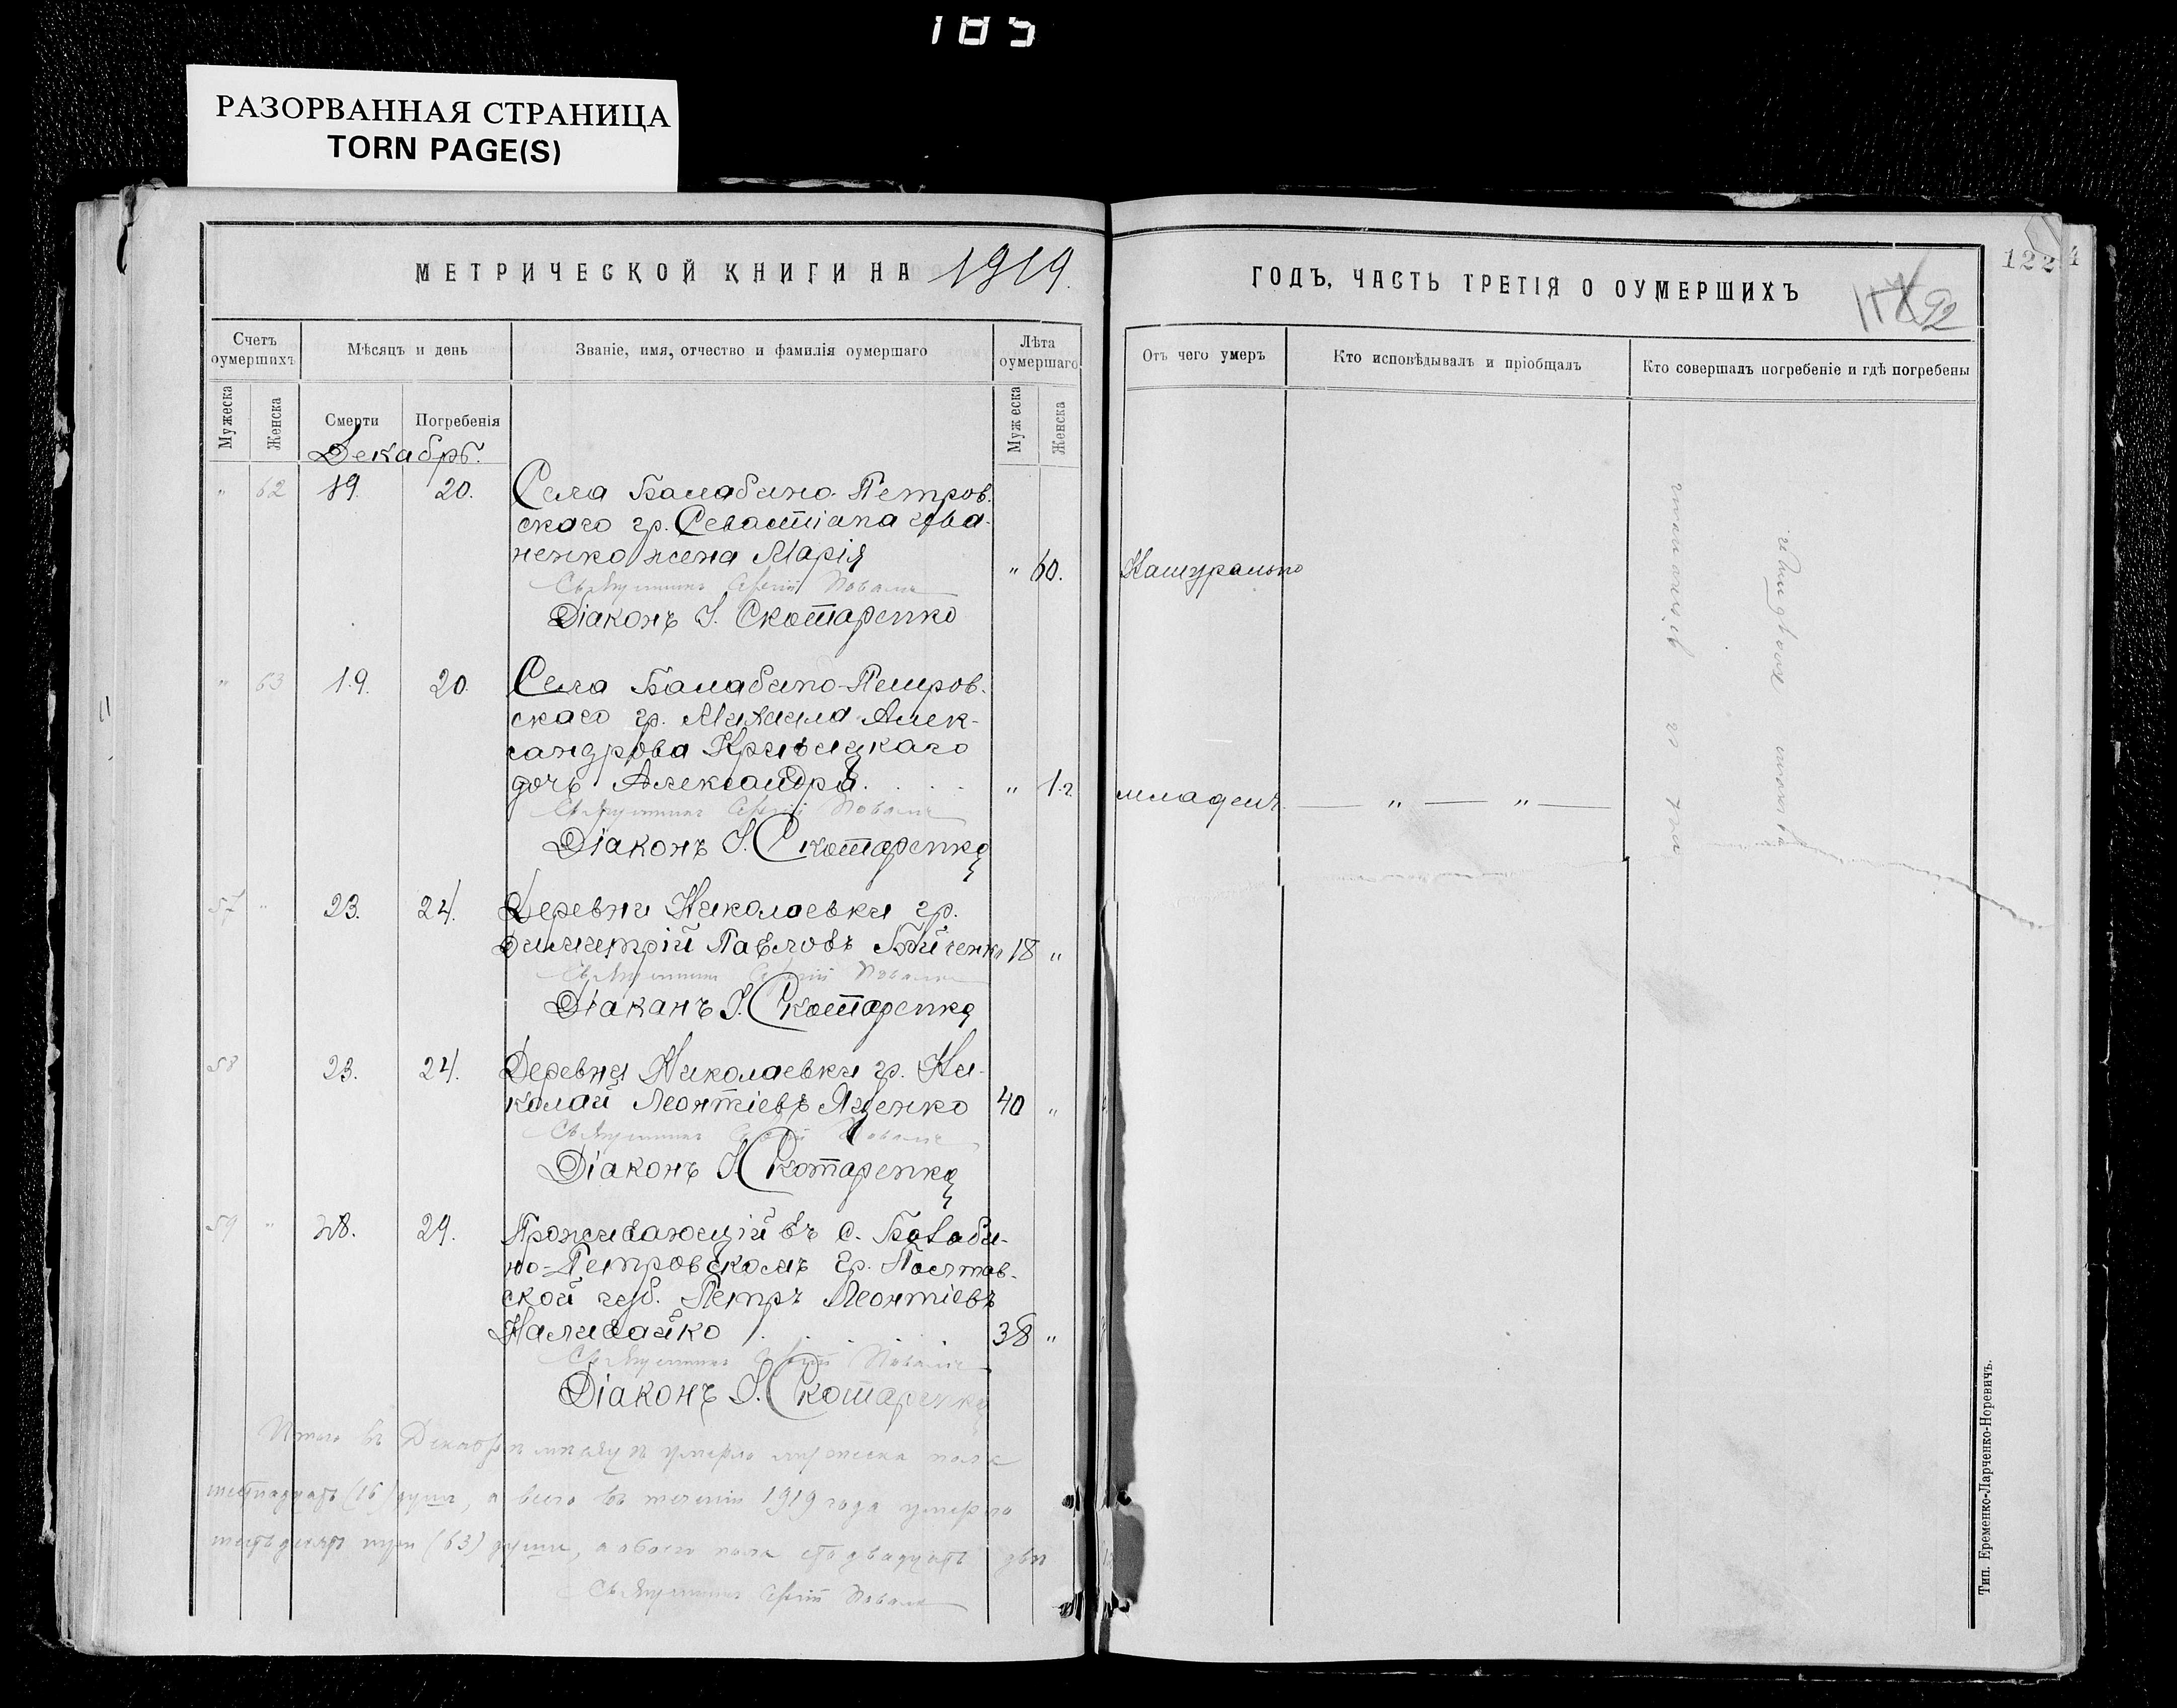 185
РАЗОРВАННАЯ СТРАНИЦА
TORN PAGE(S)
МЕТРИЧЕСКОЙ КНИГИ НА 1919.
Счетъ оумершихъ
Мѣсяцъ и день
Званіе, имя, отчество и фамилія оумершаго
Лѣта оумершаго
Мужеска
Женска
Смерти
Погребенія
Мужеска
Женска
Декабрь.
" 62 19. 20. Села Балабино-Петров-
скаго гр. Севастіана Ива-
ненко жена Марія " 60.
Священникъ Сергій
Діаконъ І. Скотаренко
" 63 19. 20. Села Балабино-Петров-
скаго гр. Михаила Алек-
сандрова Кривицкаго
дочь Александра. " 1 г.
Священникъ Сергій
Діаконъ І. Скотаренко
57 " 23. 24. Деревни Николаевки гр.
Димитрій Павловъ 18 "
Священникъ Сергій
Діаконъ І. Скотаренко
58 23. 24. Деревни Николаевки гр. Ни-
колай Леонтіевъ Яценко 40 "
Священникъ Сергій
Діаконъ І. Скотаренко
59 " 28. 29. Проживающій въ с. Балаби-
но-Петровскомъ гр. Полтав-
ской губ. Петръ Леонтіевъ
Наливайко 38 "
Священникъ Сергій
Діаконъ І. Скотаренко
Итого въ Декабрѣ мѣсяцѣ умерло мужеска пола
шестнадцать (16) душъ, а всего въ теченіи 1919 года умерло
шестьдесятъ три (63) души, а обоего пола сто двадцать двѣ
Священникъ Сергій
ГОДЪ, ЧАСТЬ ТРЕТІЯ О ОУМЕРШИХЪ
122
92
Отъ чего умеръ
Кто исповѣдывалъ и пріобщалъ
Кто совершалъ погребеніе и гдѣ погребены
Натурально
младенч. — " — " —
Тип. Еременко-Ларченко-Норевичъ.